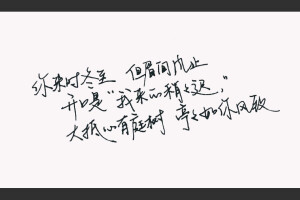 你来时冬至 但眉间九止
开口是“我来的稍迟，”
大抵心有庭树 亭亭如你风致